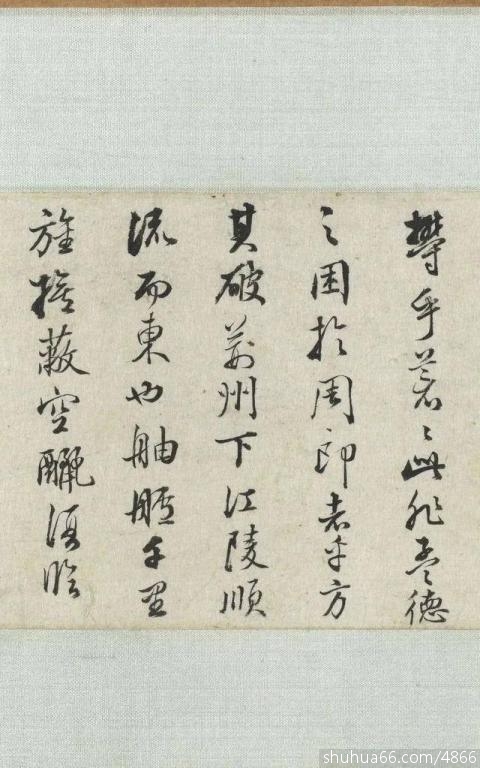 鬱乎蒼〻此非孟德
之困於周郎者乎方
其破荊州下江陵順
流而東也舳艫千里
旌旗蔽空釃酒臨
shuhua66.com/4866